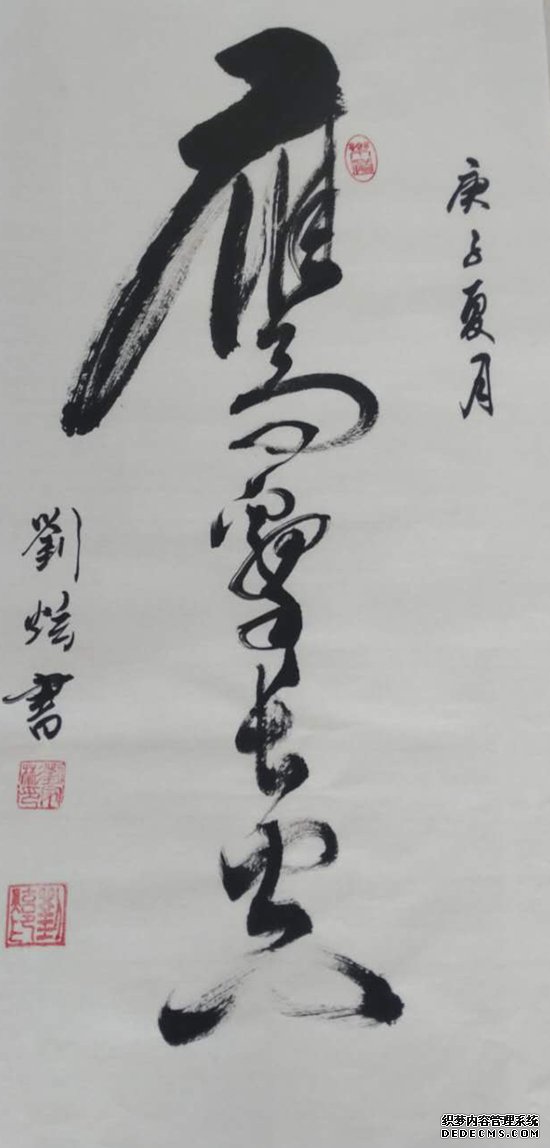 庚子夏月
鷹擊長空
劉書
织梦内容管理系统
DEDECMS.COM